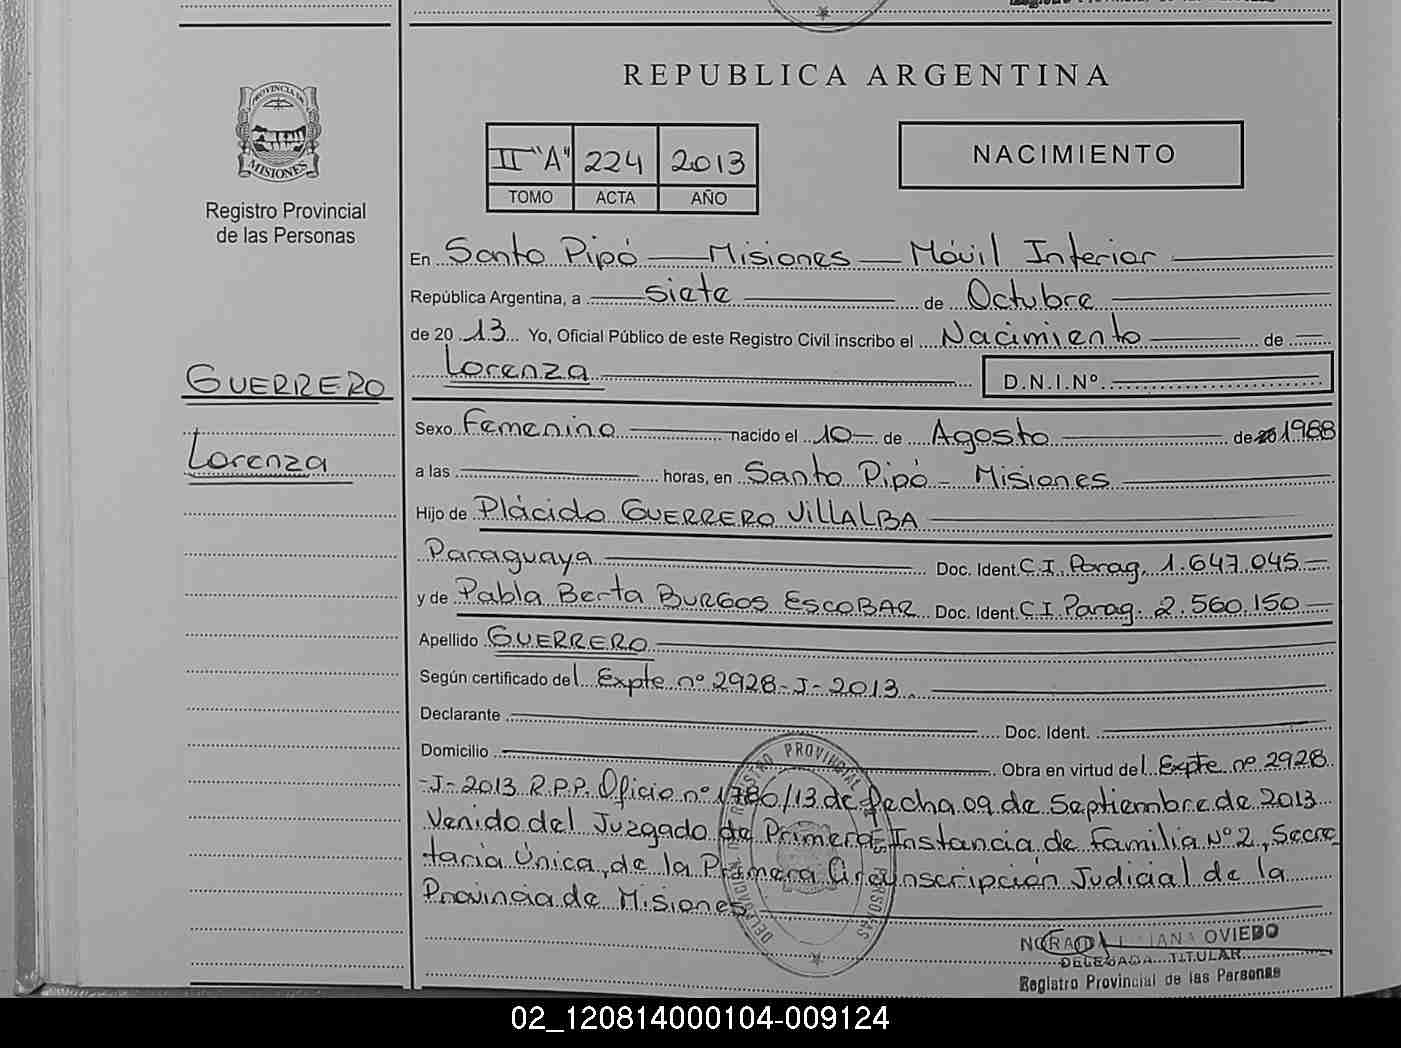 REPUBLICA ARGENTINA
PROVINCIA DE
MISIONES
Registro Provincial
de las Personas
II "A" 224 2013
TOMO ACTA AÑO
NACIMIENTO
En Santo Pipó — Misiones — Móvil Interior
República Argentina, a siete de Octubre
de 2013 Yo, Oficial Público de este Registro Civil inscribo el Nacimiento de
Lorenza D.N.I.Nº
GUERRERO
Lorenza
Sexo Femenino nacido el 10 de Agosto de 1988
a las horas, en Santo Pipó - Misiones
Hijo de Plácido GUERRERO VILLALBA
Paraguaya Doc. Ident. C.I. Parag. 1.647.045
y de Pabla Berta BURGOS ESCOBAR Doc. Ident. C.I. Parag. 2.560.150
Apellido GUERRERO
Según certificado del Expte nº 2928-J-2013.
Declarante Doc. Ident.
Domicilio Obra en virtud del Expte nº 2928
-J-2013 R.P.P. Oficio nº 1786/13 de fecha 09 de Septiembre de 2013
Venido del Juzgado de Primera Instancia de Familia Nº 2, Secre
taria Única, de la Primera Circunscripción Judicial de la
Provincia de Misiones
OVIEDO
DELEGADA TITULAR
Registro Provincial de las Personas
02_120814000104-009124